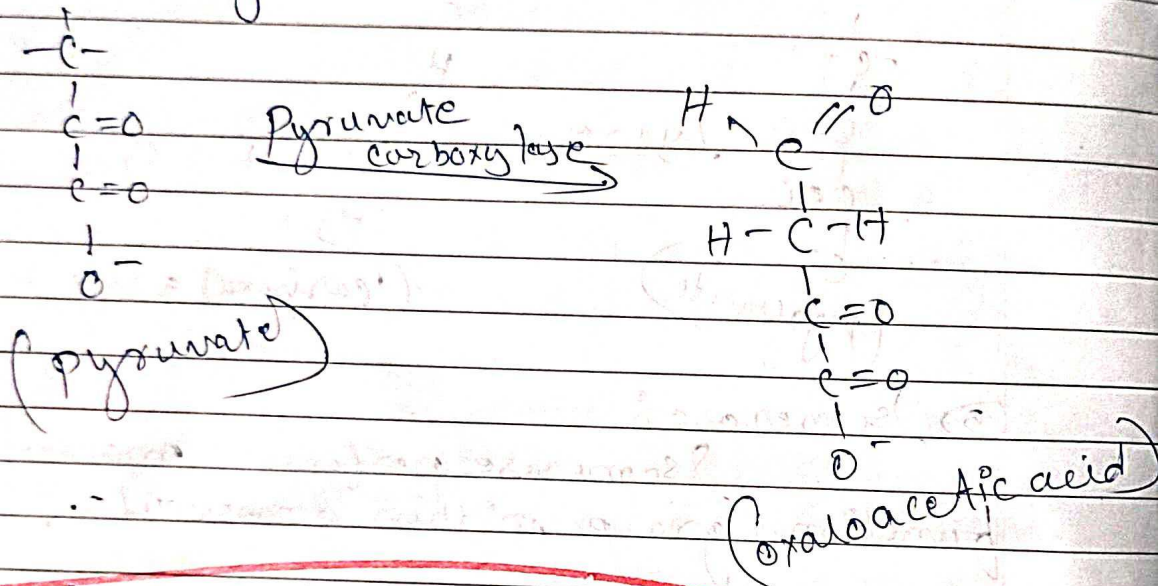 -C-
|
C=O
|
C=O
|
O-
(pyruvate)
Pyruvate
carboxylase
H O
C
|
H-C-H
|
C=O
|
C=O
|
O-
(oxaloacetic acid)